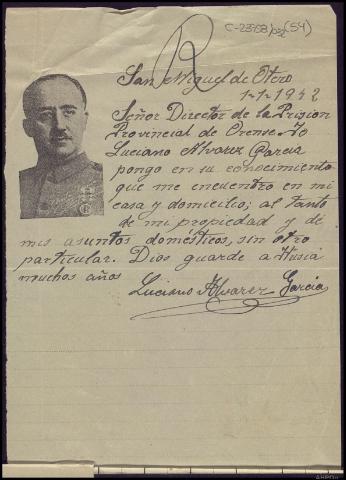 C-23758/032 (54)
R
San Miguel de Otero
1-1-1942
Señor Director de la Prision
Provincial de Orense - Yo
Luciano Alvarez Garcia
pongo en su conocimiento
que me encuentro en mi
casa y domicilio; al tanto
de mi propiedad y de
mis asuntos domésticos, sin otro
particular. Dios guarde a
muchos años
Luciano Alvarez Garcia